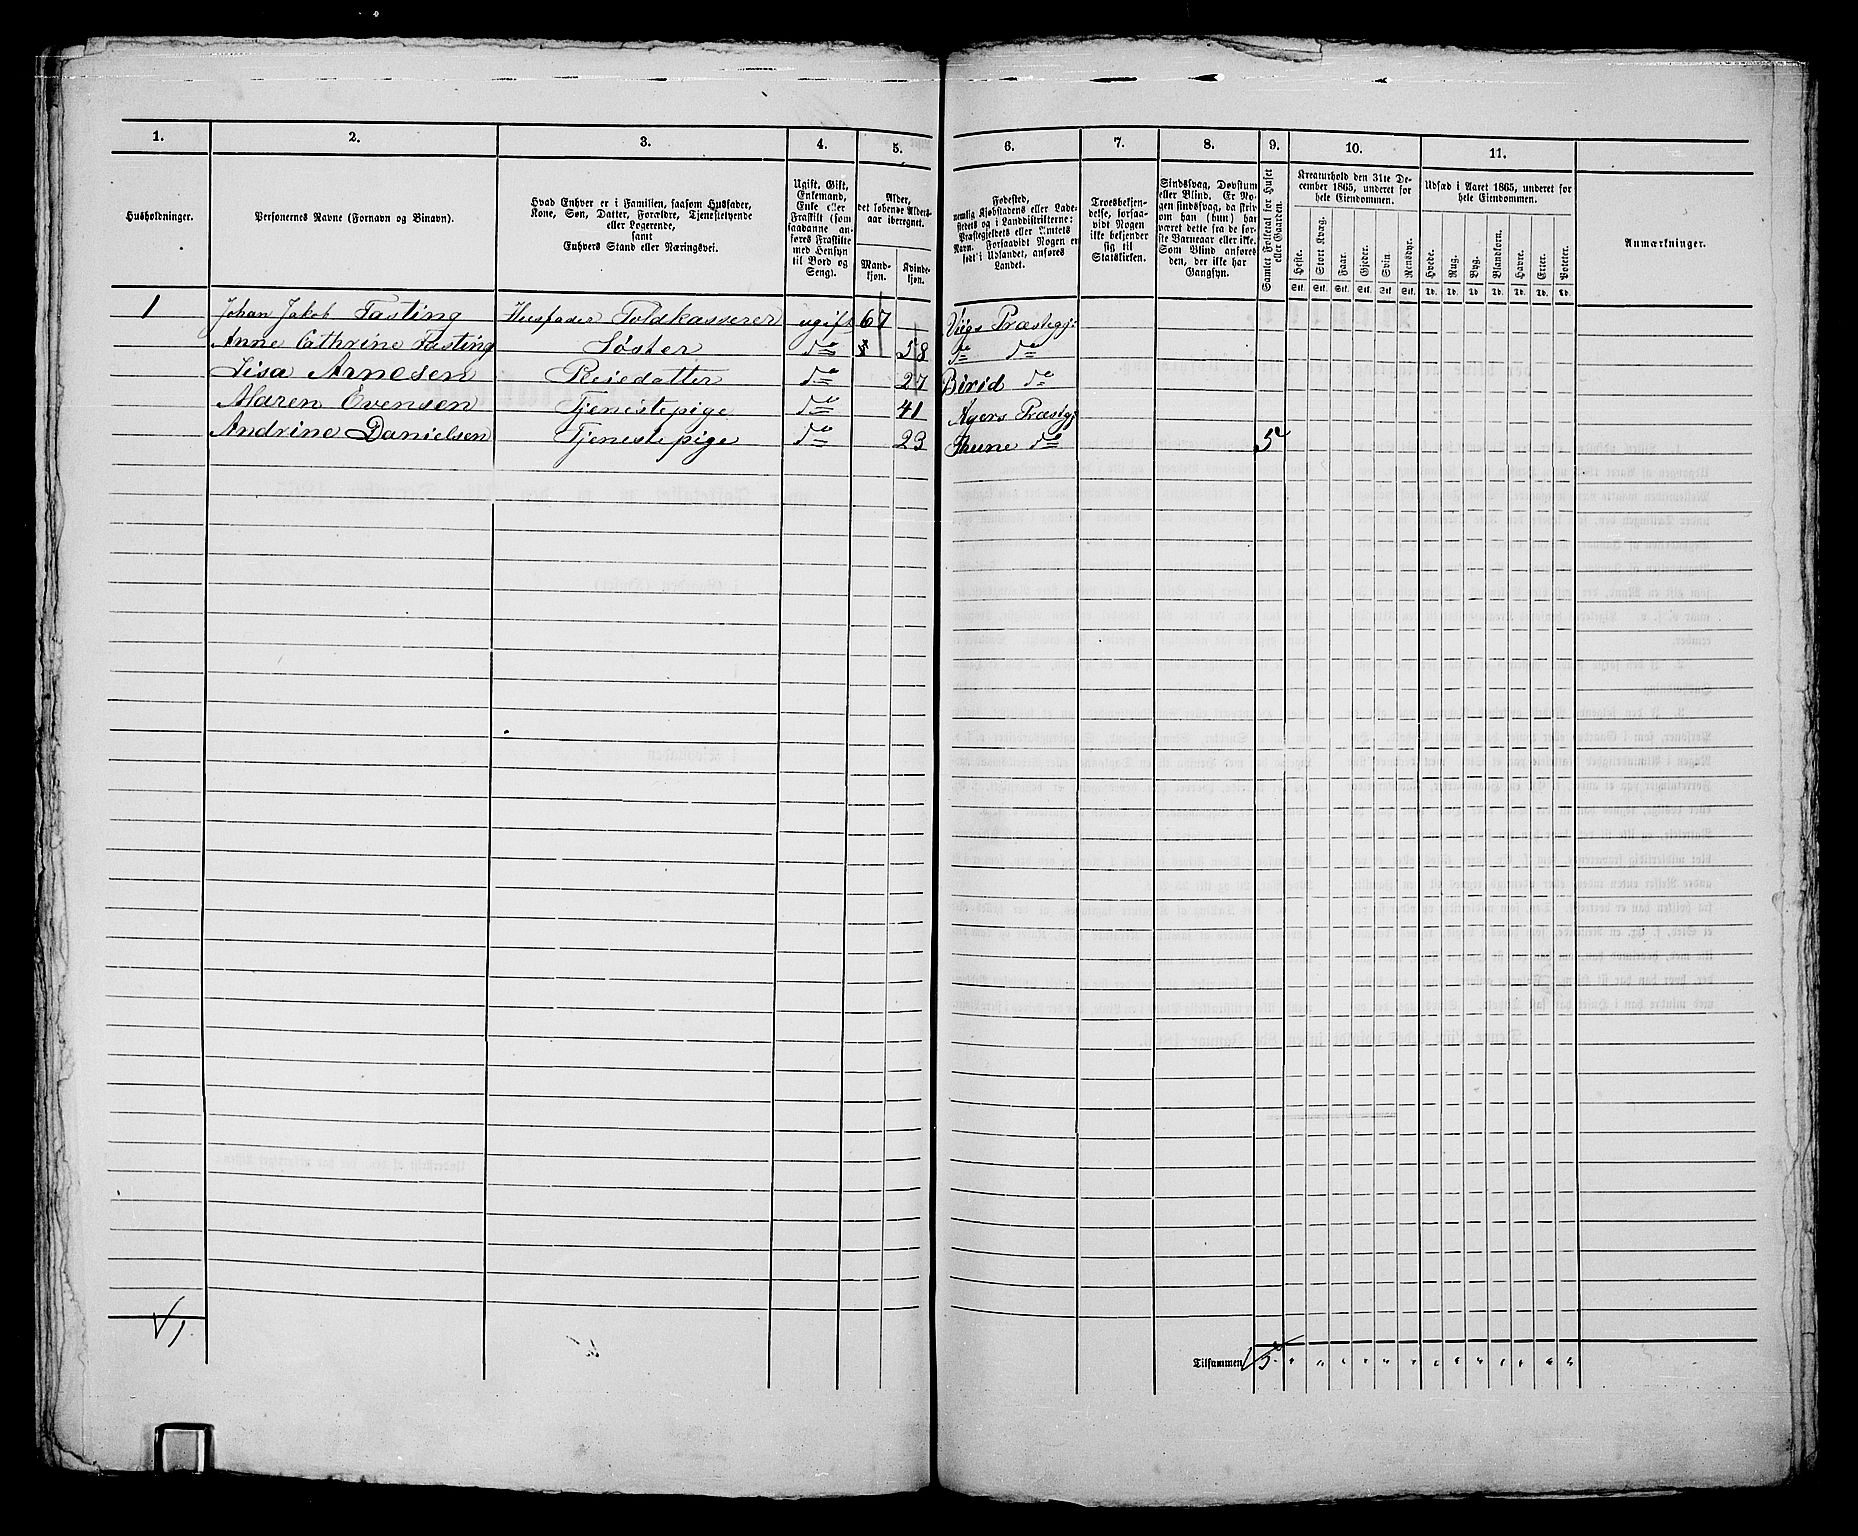 1. 2. 3. 4. 5. 6. 7. 8. 9. 10. 11.
Husholdninger.
Personernes Navne (Fornavn og Binavn).
Hvad Enhver er i Familien, saasom Husfader,
Kone, Søn, Datter, Forældre, Tjenestetyende
eller Logerende,
samt
Enhvers Stand eller Næringsvei.
Ugift, Gift,
Enkemand,
Enke eller
Fraskilt (som
saadanne an-
føres Fraskilte
med Hensyn
til Bord og
Seng).
Alder,
det løbende Alders-
aar iberegnet.
Mand-
kjøn.
Kvinde-
kjøn.
Fødested,
nemlig Kjøbstadens eller Lade-
stedets og i Landdistrikterne:
Præstegjeldets eller Amtets
Navn. Forsaavidt Nogen er
født i Udlandet, anføres
Landet.
Troesbekjen-
delse, forsaa-
vidt Nogen
ikke bekjender
sig til
Statskirken.
Sindssvag, Døvstum
eller Blind. Er No-
gen sindssvag, da skriv
om han (hun) har
været dette fra de før-
ste Barneaar eller ikke.
Som Blind anføres
den, der ikke har
Gangsyn.
Samlet Folketal for Huset
eller Gaarden.
Kreaturhold den 31te De-
cember 1865, underet for
hele Eiendommen.
Heste. Stort Kvæg. Faar. Gjeder. Svin. Rensdyr.
Stk. Stk. Stk. Stk. Stk. Stk.
Udsæd i Aaret 1865, underet for
hele Eiendommen.
Hvede. Rug. Byg. Blandkorn. Havre. Erter. Poteter.
Td. Td. Td. Td. Td. Td. Td.
Anmærkninger.
1 Johan Jakob Fasting Husfader Toldkasserer ugift 67 Viigs Præstegj:
Anne Cathrine Fasting Søster do 58 do do
Lisa Arnesen Pleiedatter do 27 Birid do
Maren Evensen Tjenestepige do 41 Agers Præstgj
Andrine Danielsen Tjenestepige do 23 Thune do 5
1
Tilsammen 5